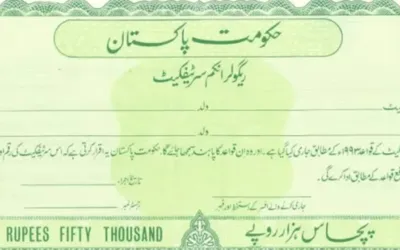 حکومت پاکستان
ریگولر انکم سرٹیفکیٹ
ولد
ولد
کیٹ کے قواعد ۱۹۹۳ء کے مطابق جاری کیا گیا ہے۔ اور وہ ان قواعد کا پابند سمجھا جائے گا۔ حکومت پاکستان یہ اقرار کرتی ہے کہ اس سرٹیفکیٹ کی رقم اور
قواعد کے مطابق ادا کرے گی۔
تاریخ اجراء
جاری کرنے والے افسر کے دستخط اور مہر
رجسٹر نمبر
RUPEES FIFTY THOUSAND
پچاس ہزار روپے